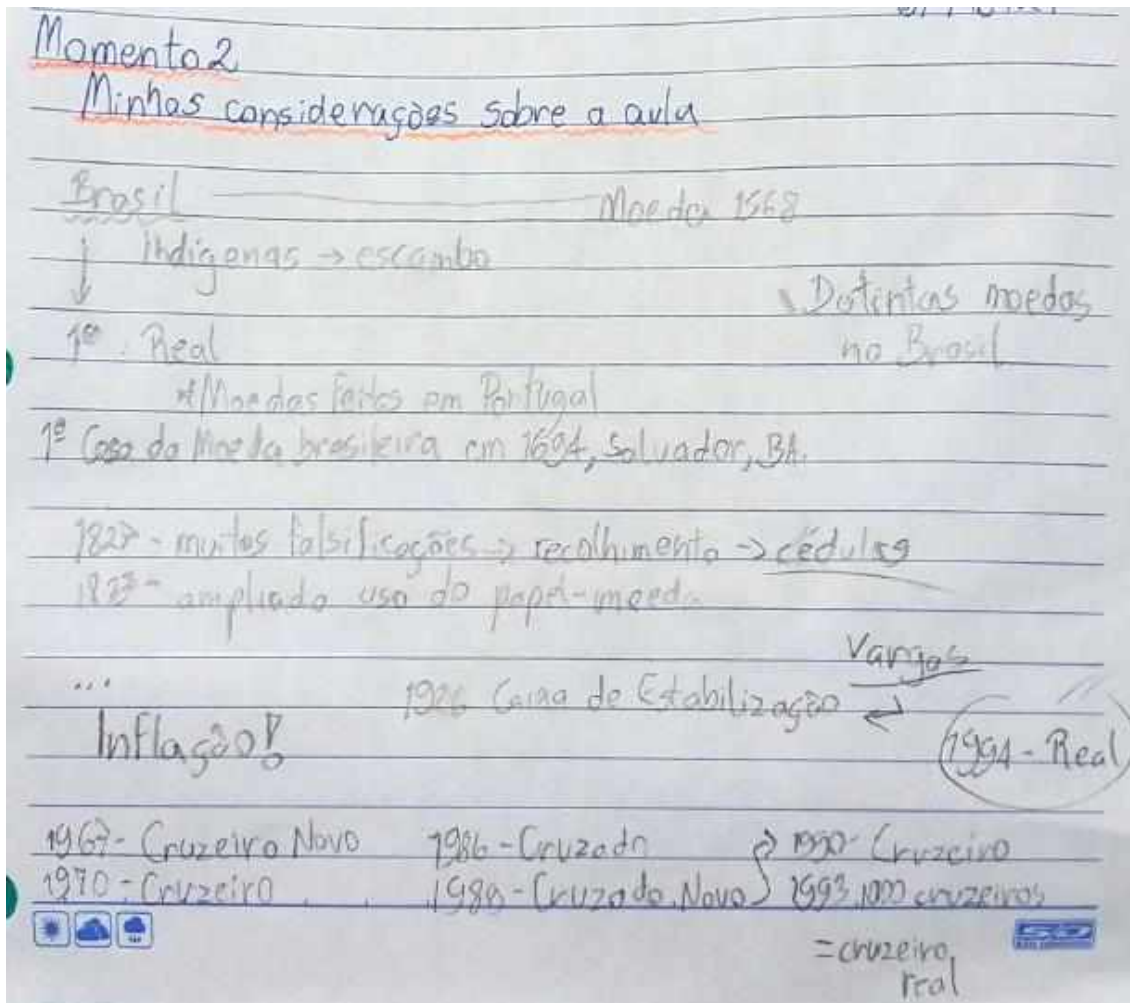 Momento 2
Minhas considerações sobre a aula
Brasil Moeda 1568
↓ Indígenas → escambo
Distintas moedas
no Brasil
1º Real
*Moedas feitas em Portugal
1ª Casa da Moeda brasileira em 1694, Salvador, BA.
- muitas falsificações → recolhimento → cédulas
- ampliado uso do papel-moeda
Vargas
...
1926 Caixa de Estabilização ↩
Inflação!
1994 - Real
1967 - Cruzeiro Novo 1986 - Cruzado → 1990 - Cruzeiro
1970 - Cruzeiro 1989 - Cruzado Novo 1993 1000 cruzeiros
= cruzeiro
real